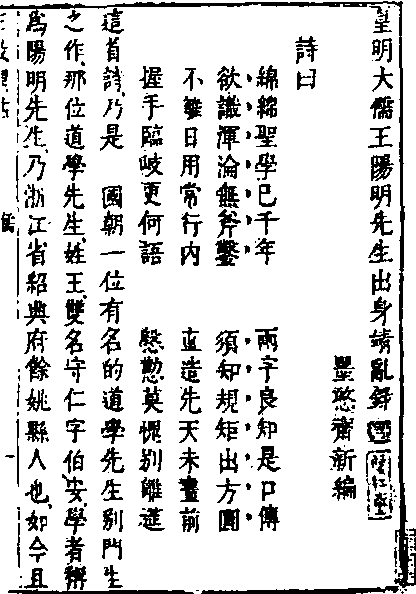 皇明大儒王陽明先生出身靖亂錄
墨憨齋新編
詩曰
綿綿聖學已千年 兩字良知是口傳
欲識渾淪無斧鑿 須知規矩出方圓
不離日用常行内 直造先天未畫前
握手臨岐更何語 慇懃莫愧别離筵
這首詩乃是 國朝一位有名的道學先生别門生
之作那位道學先生姓王雙名守仁字伯安學者稱
為陽明先生乃浙江省紹興府餘姚縣人也如今且